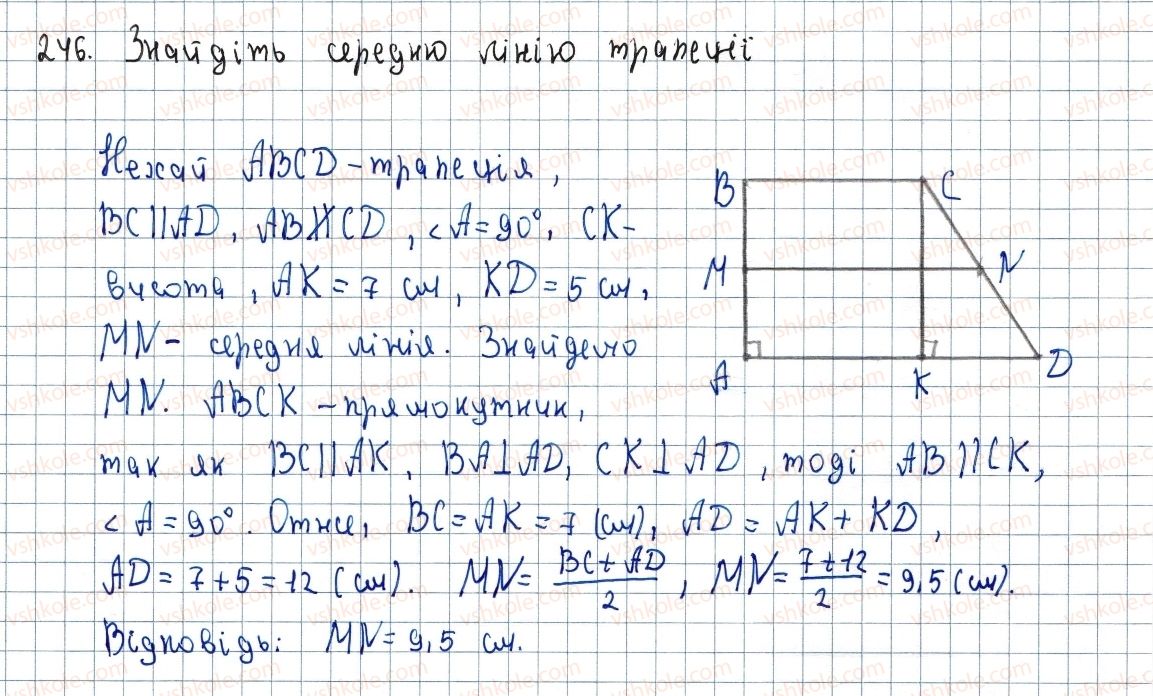 246. Знайдіть середню лінію трапеції
Нехай ABCD – трапеція,
BC || AD, AB ∦ CD, < A = 90°, CK –
висота, AK = 7 см, KD = 5 см,
MN – середня лінія. Знайдемо
MN. ABCK – прямокутник,
так як BC || AK, BA ⊥ AD, CK ⊥ AD, тоді AB || CK,
< A = 90°. Отже, BC = AK = 7 (см), AD = AK + KD,
AD = 7 + 5 = 12 (см). MN = (BC + AD)/2, MN = (7 + 12)/2 = 9,5 (см).
Відповідь: MN = 9,5 см.
B C
M N
A K D
vshkole.com